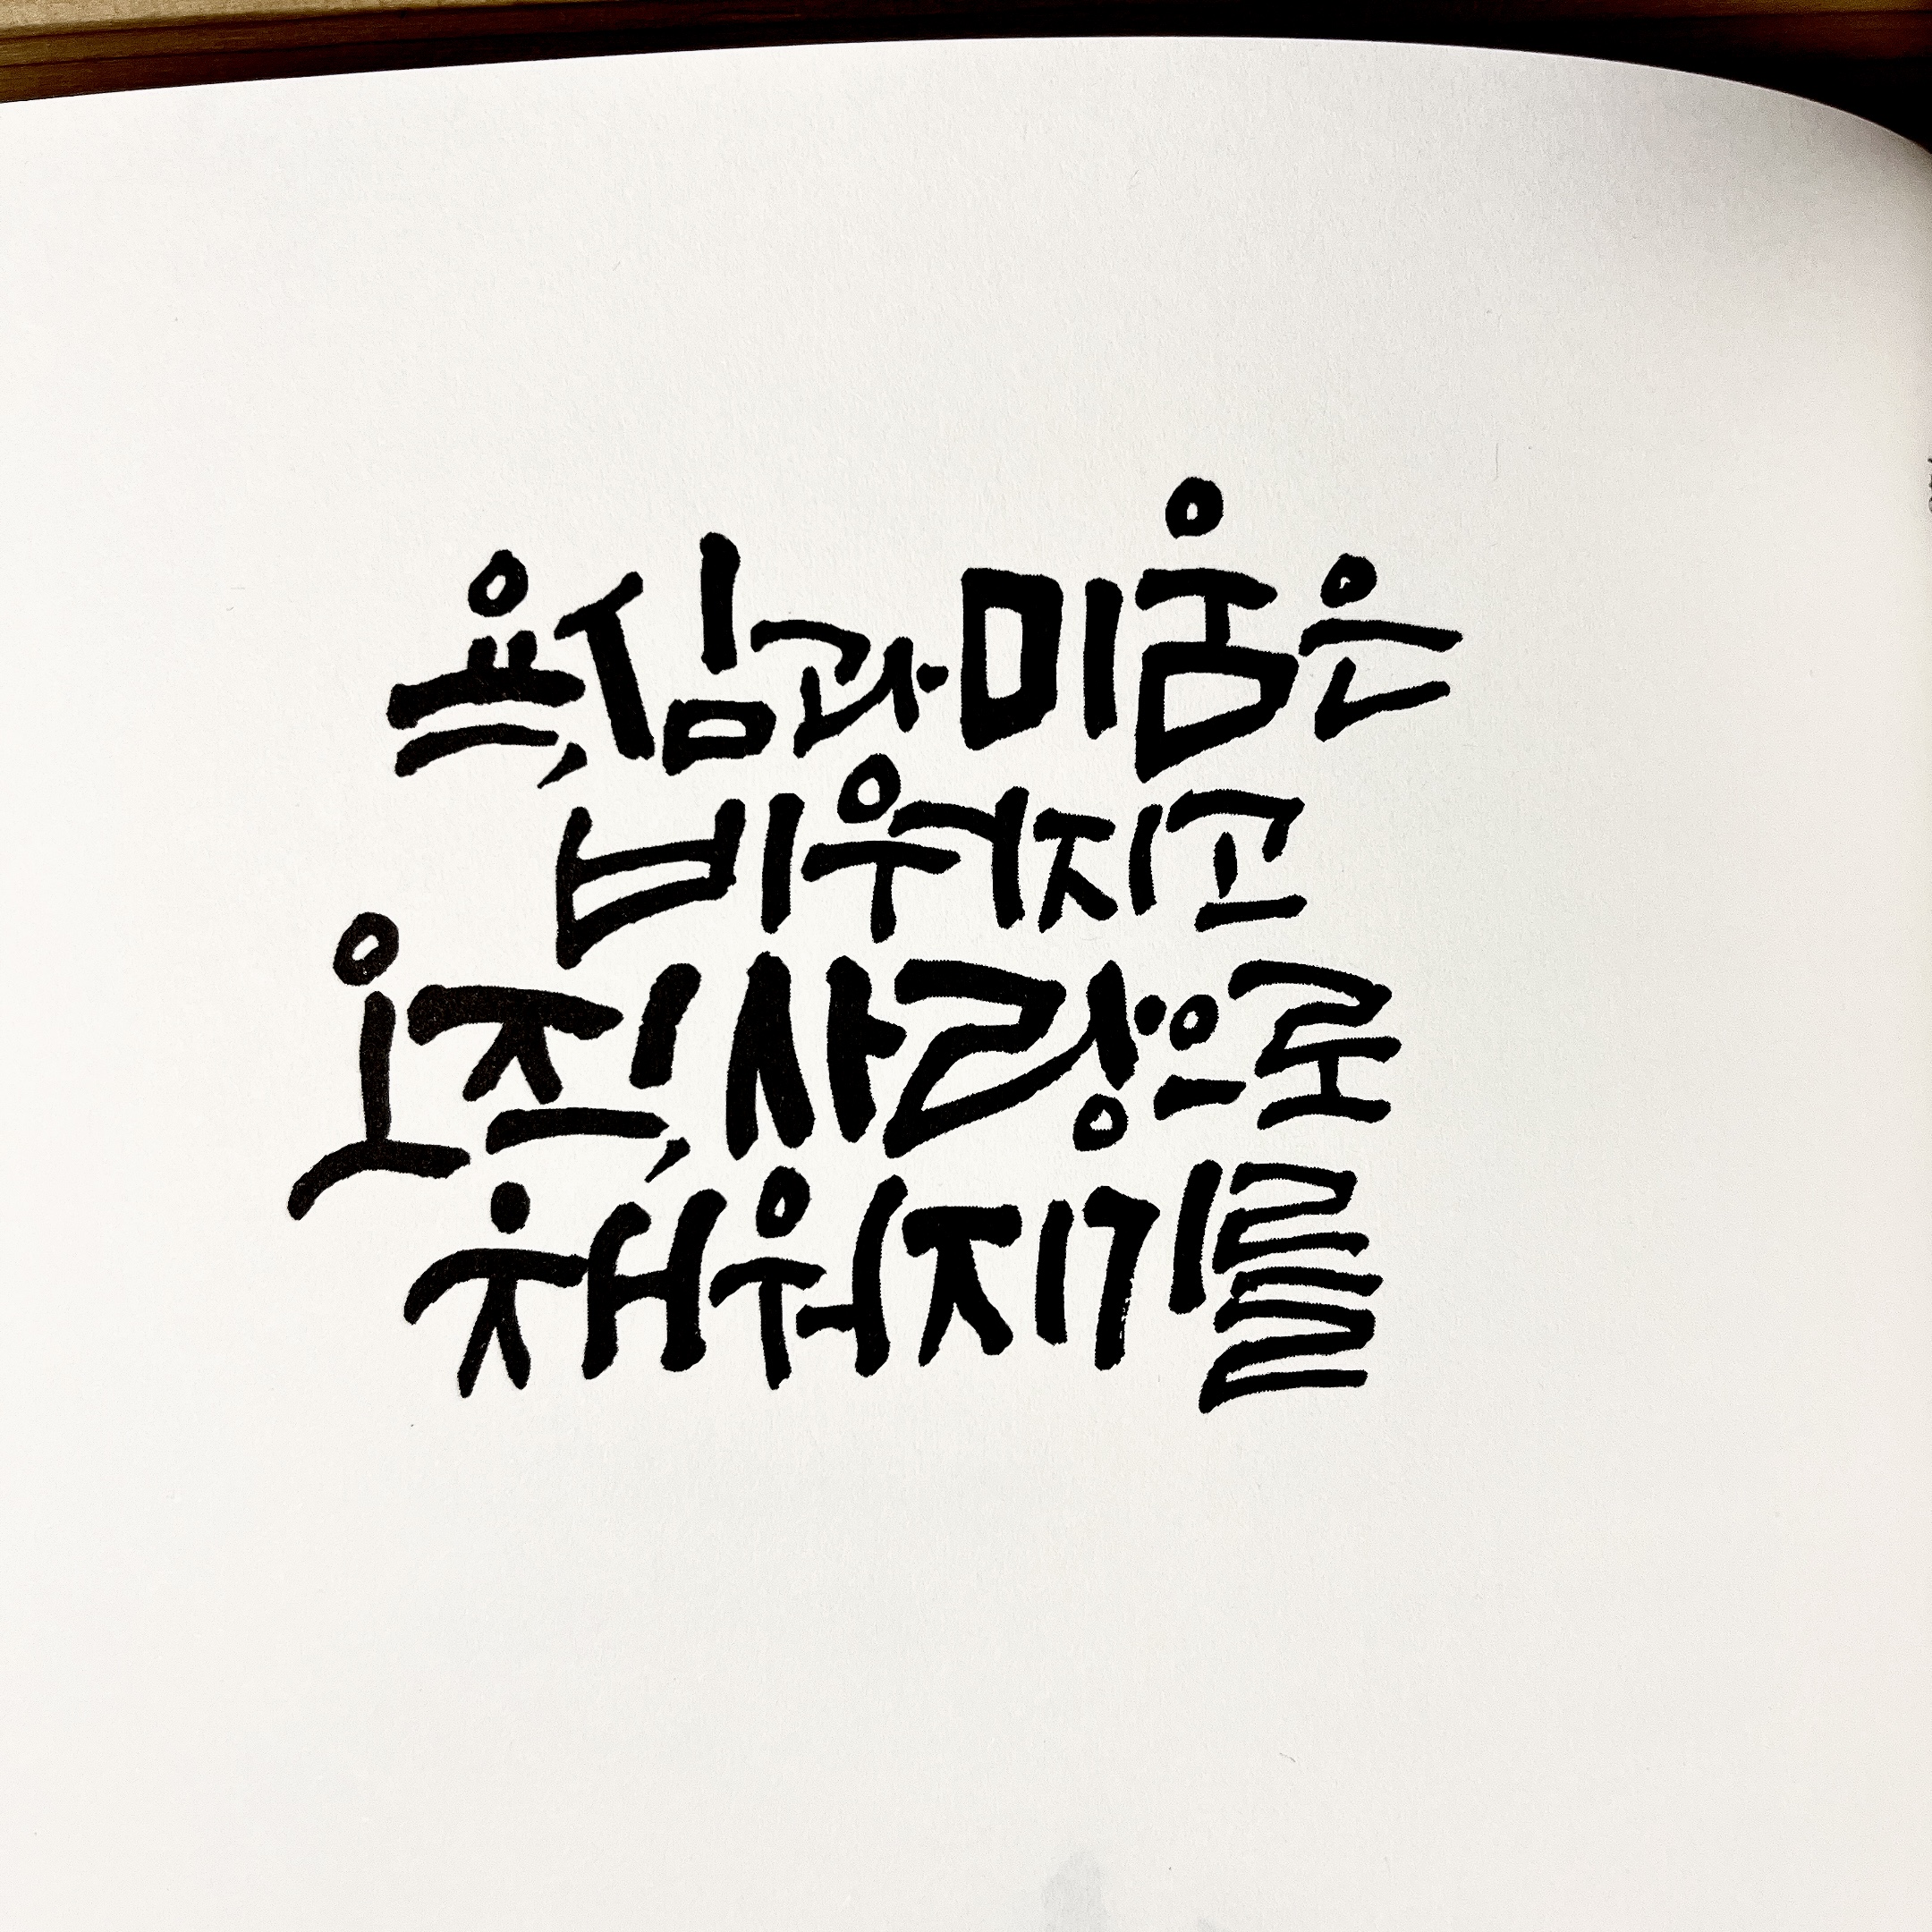 욕심과 미움은
비워지고
오직 사랑으로
채워지기를